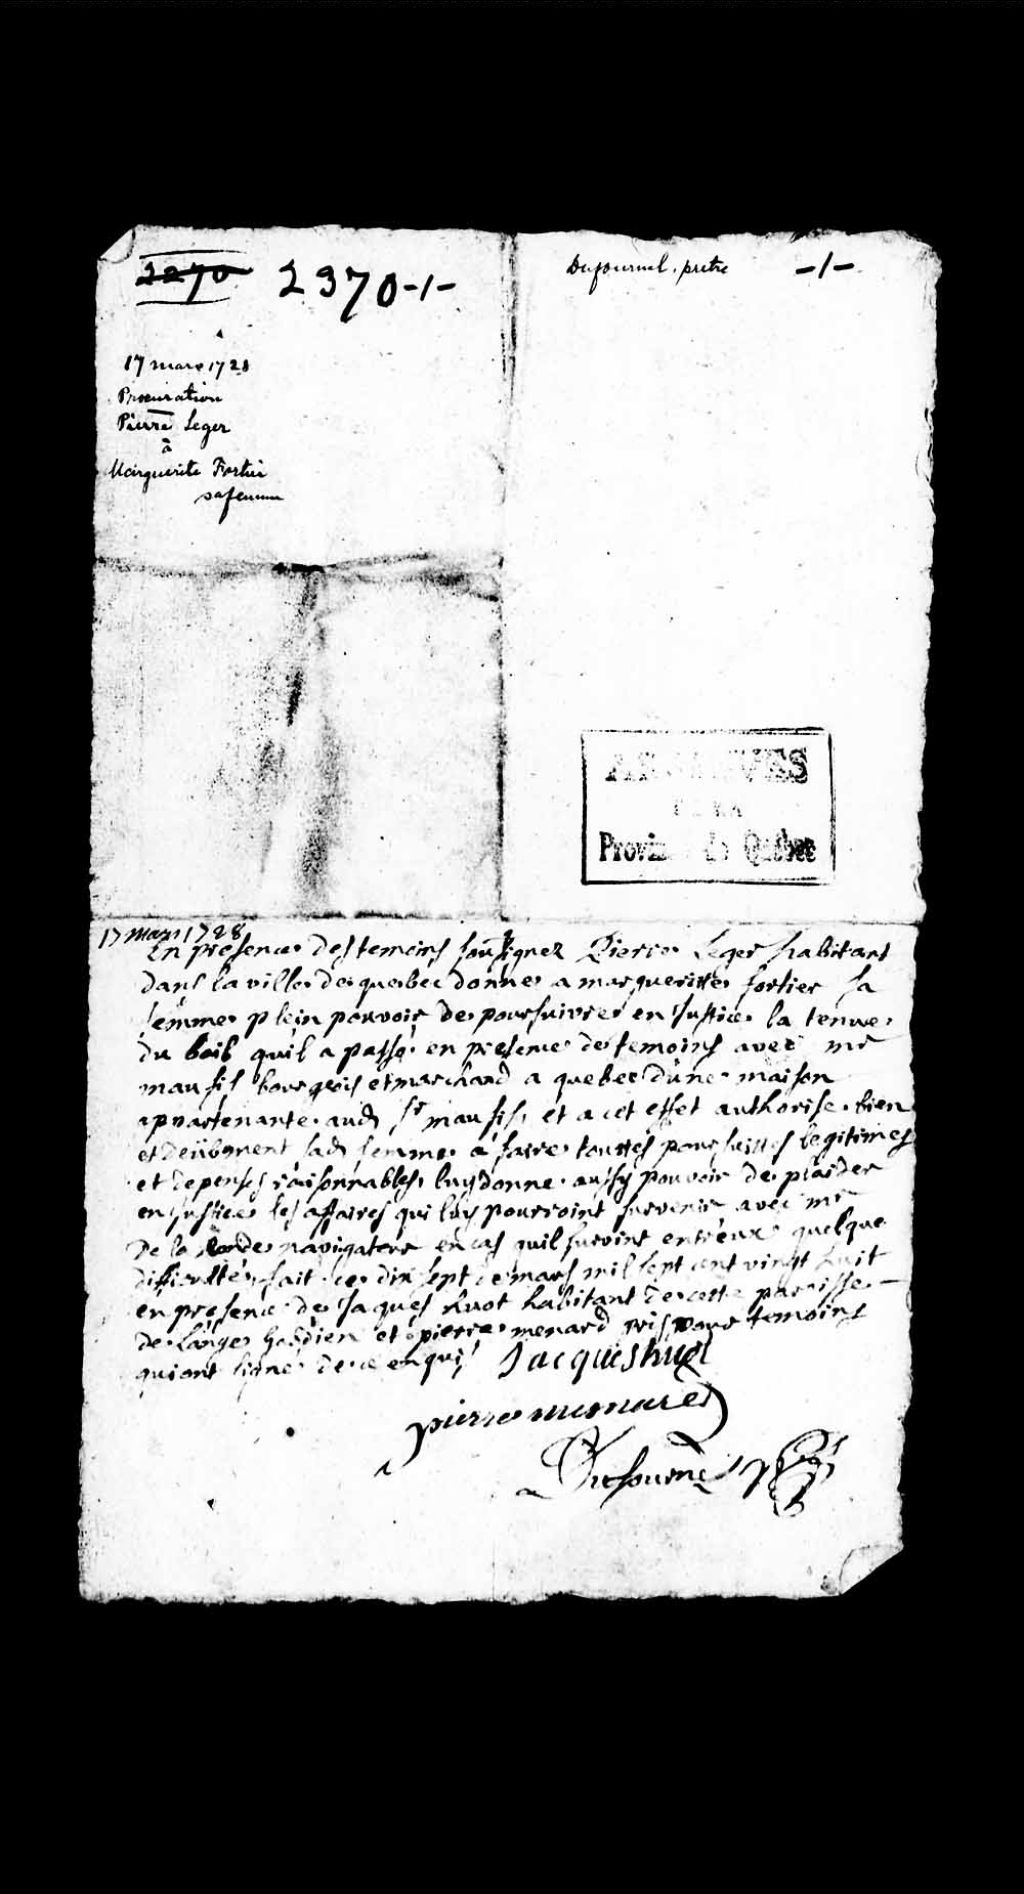 2270 2370-1-
Dufournel, pretre -1-
17 mars 1728
Procuration
Pierre Leger
à
Marguerite Fortier
sa femme
ARCHIVES
DE LA
Province de Québec
17 mars 1728
En presence des temoins sousignez Pierre Leger habitant
dans la ville de quebec donne a margueritte fortier sa
femme plein pouvoir de poursuivre en Justice la tenue
du bail quil a passé en presence de temoins avec mr
maufil bourgois et marchand a quebec dune maison
appartenante aud sr maufils, et a cet effet authorise bien
et deübment sad femme a faire touttes poursuittes legitimes
et depenses raisonnables, luy donne aussy pouvoir de plaider
en justice les affaires qui luy pourroint survenir avec mr
De la navigateur en cas quil survint entreux quelque
difficulté, fait ce dix sept de mars mil sept cent vingt huit
en presence de Jaques huot habitant de cette paroisse
de Lange Gardien et pierre menard pris pour temoins
qui ont signe de ce enquis Jacques huot
pierre menard
Dufournel ptre